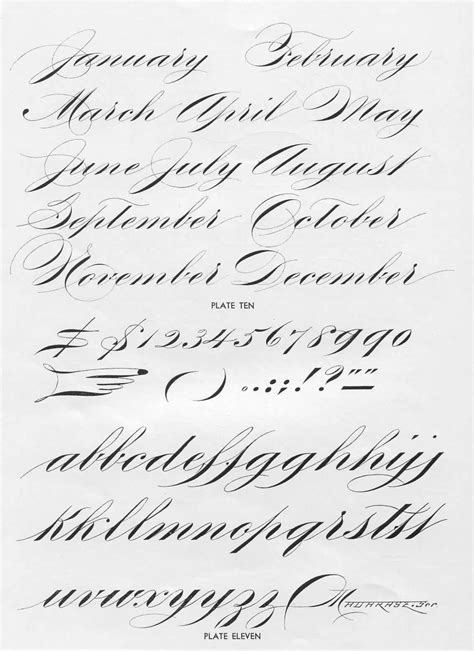 January February
March April May
June July August
September October
November December
PLATE TEN
$12345678990
( ) .,:;!?""
abbcdeffgghhijj
kkllmnopqrsttt
uvwxyyzz Madarasz. Scr.
PLATE ELEVEN